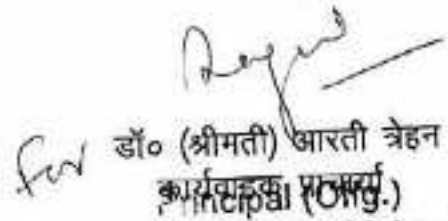 For डॉ० (श्रीमती) आरती त्रेहन
कार्यवाहक प्राचार्या
Principal (Offg.)